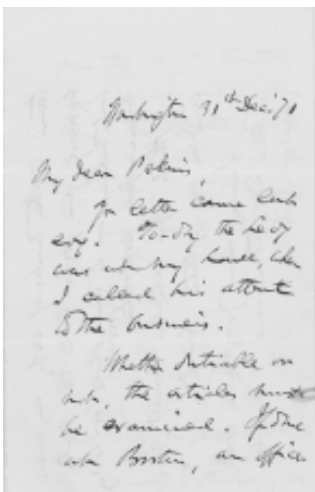 Washington 31st Dec. '71
My dear Robins,
Yr letter came
To-day the Secy
was at my house, when
I called his attent
to the business.
Whether dutiable or
not, the articles must
be examined. If done
at Boston, an office